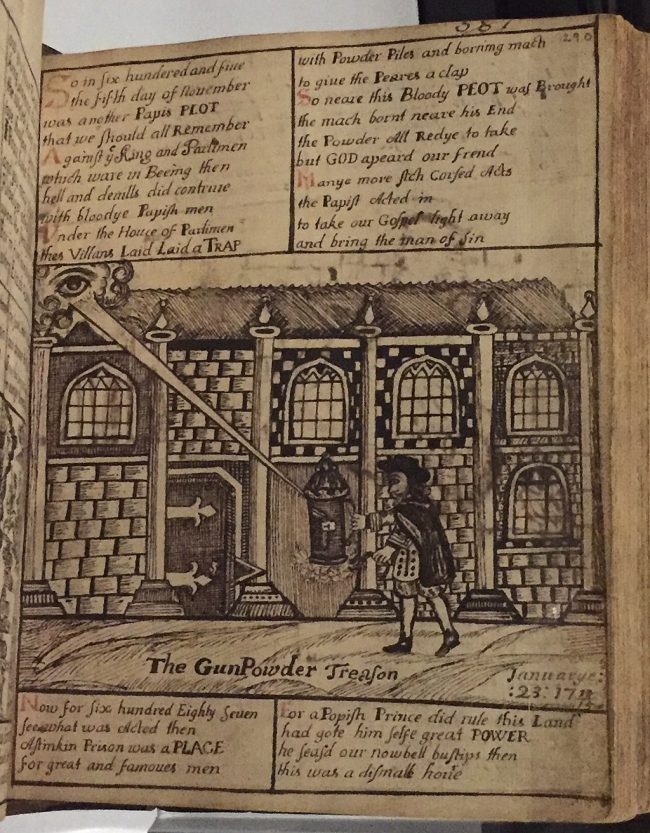 387
290
So in six hundred and five
the fifth day of November
was another Papis PLOT
that we should all Remember
Against ye King and Parlimen
which ware in Beeing then
hell and deuills did contriue
with bloodye Papish men
Vnder the House of Parlimen
thes Villans Laid Laid a TRAP
with Powder Piles and borning mach
to giue the Peares a clap
So neare this Bloody PLOT was Brought
the mach bornt neare his End
the Powder All Redye to take
but GOD apeard our frend
Manye more sich Corsed Acts
the Papist Acted in
to take our Gospel light away
and bring the man of sin
The GunPowder Treason
Januarye:
:23:17
Now for six hundred Eighty Seven
see what was Acted then
A stinkin Prison was a PLACE
for great and famoues men
For a Popish Prince did rule this Land
had gote him selfe great POWER
he seasd our nowbell bustips then
this was a dismall houre